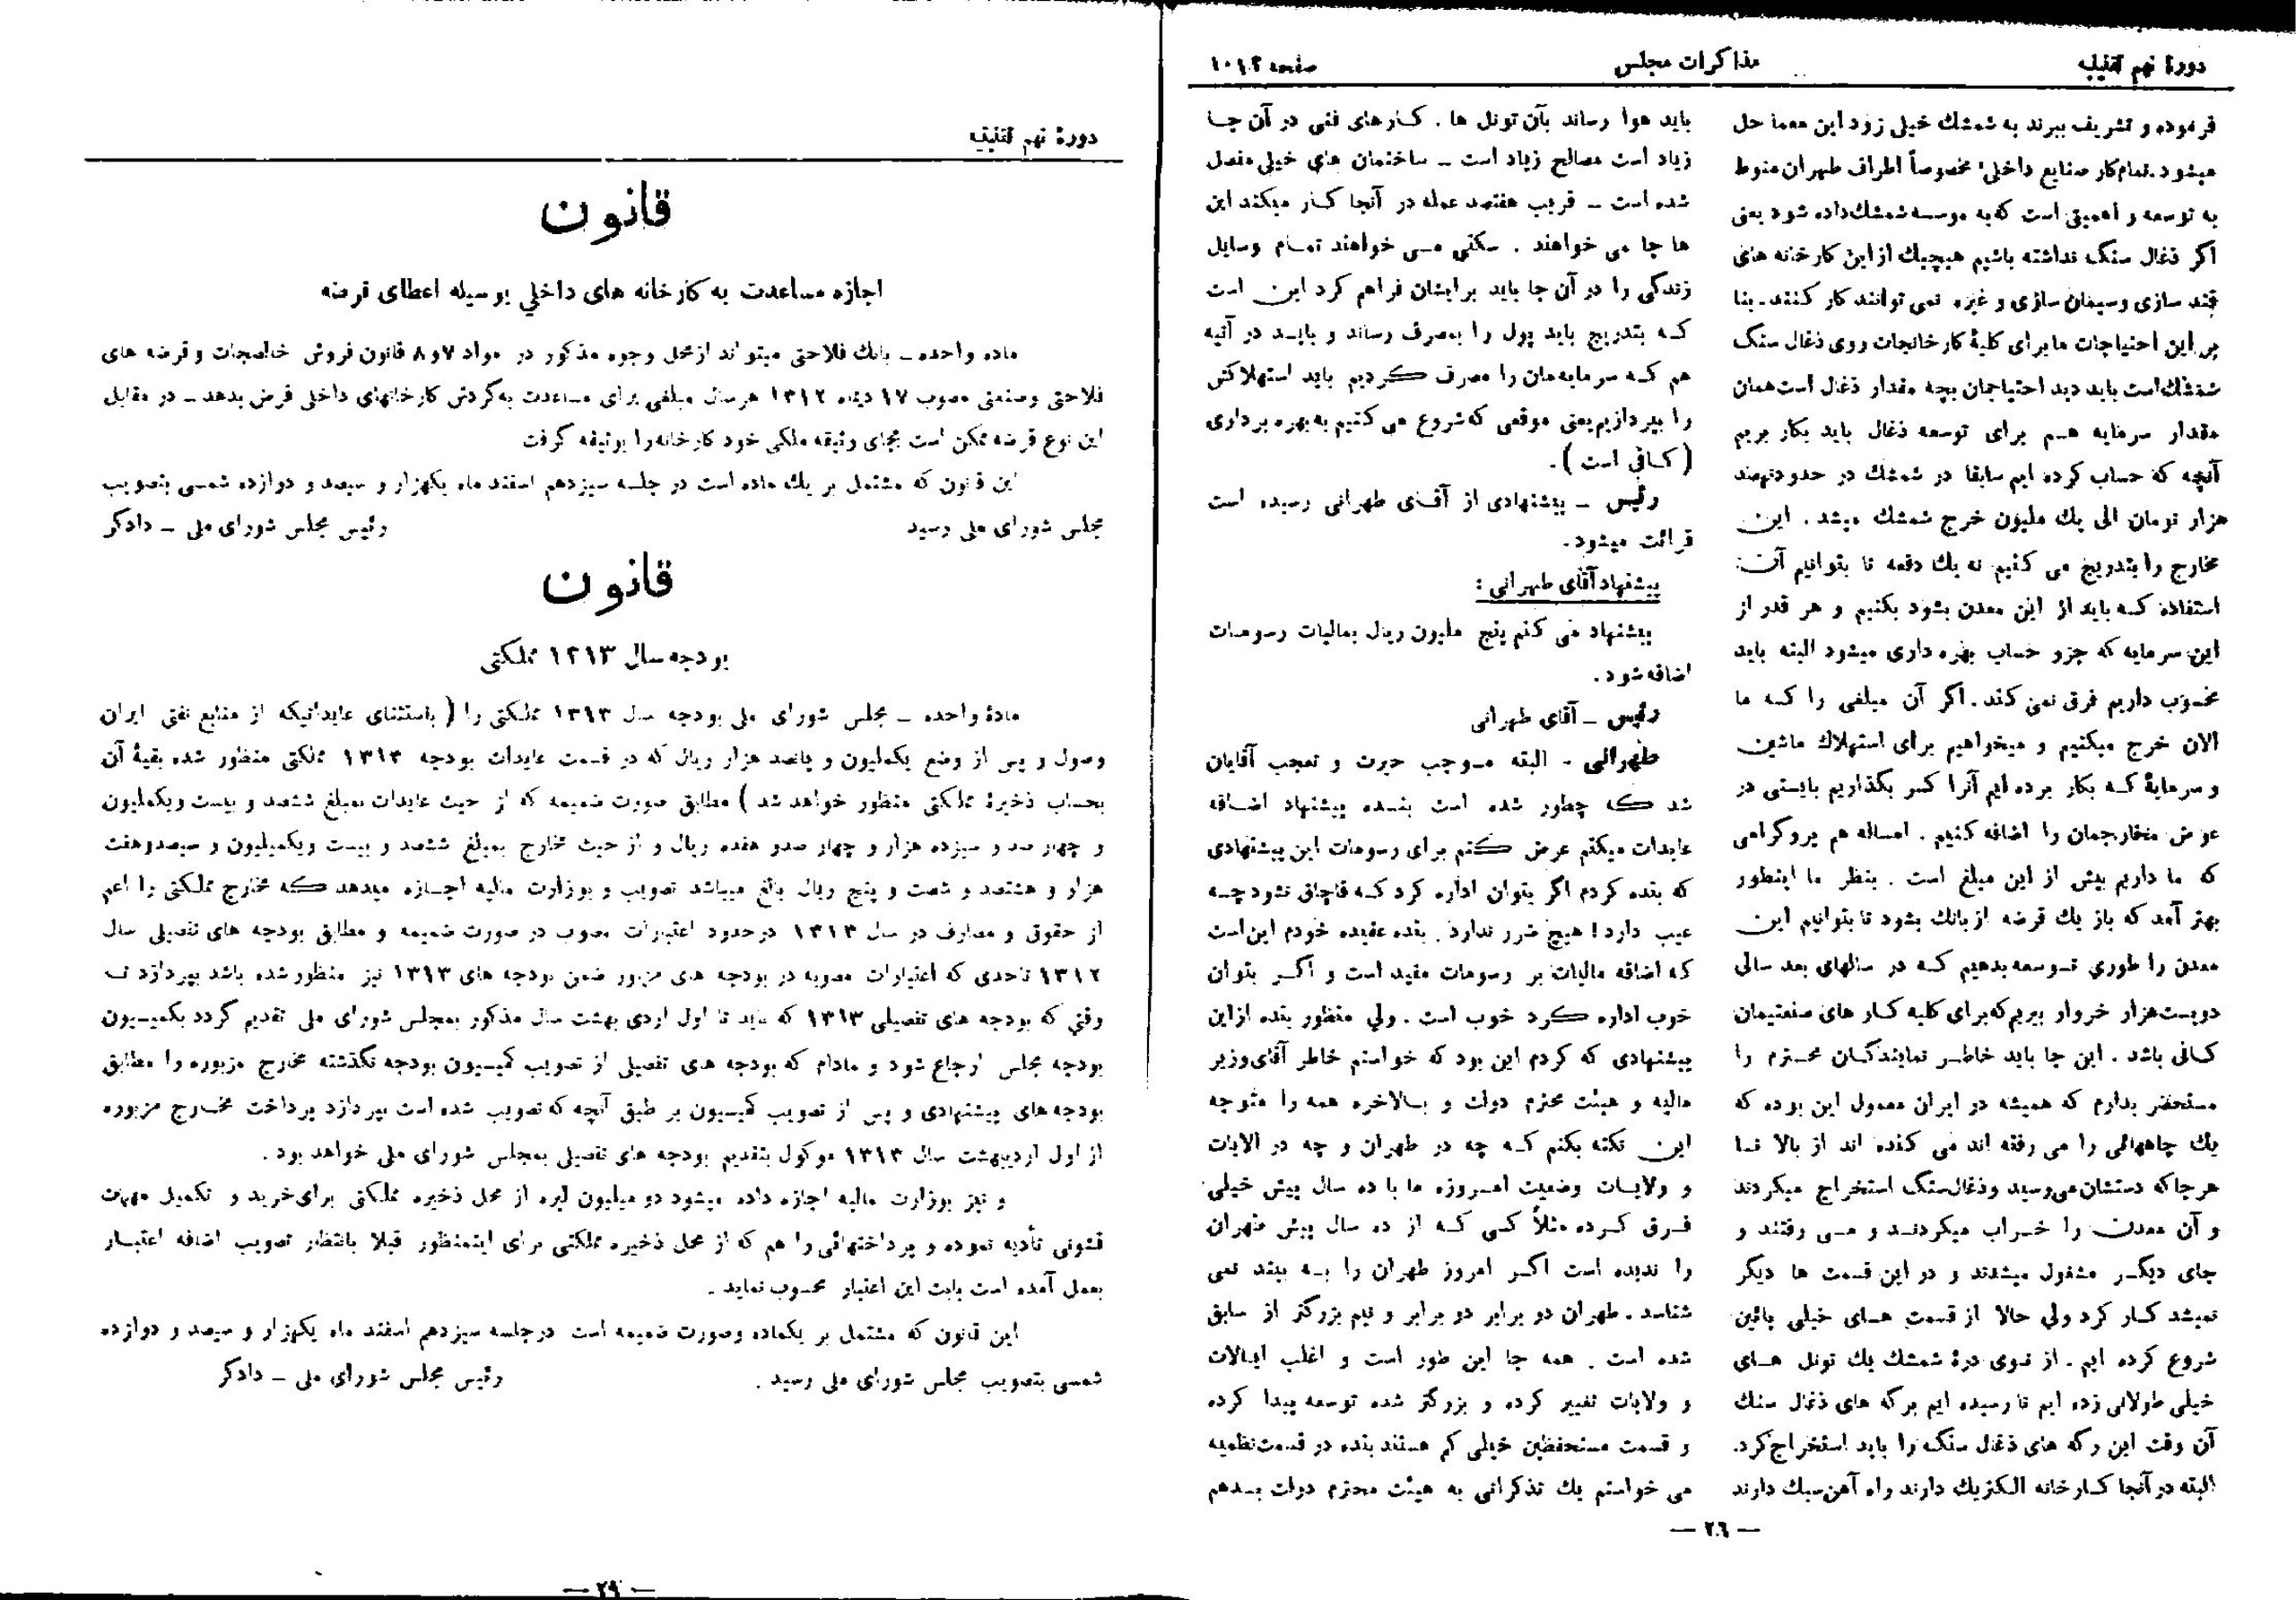 دورهٔ نهم تقنینیه
مذاکرات مجلس
صفحه ۱۰۱۴
فرموده و تشریف ببرند به شمشك خیلی زود این معما حل
میشود. تمام کار صنایع داخلی، مخصوصاً اطراف طهران منوط
به توسعه و اهمیتی است که به موسسه شمشك داده شود یعنی
اگر ذغال سنگ نداشته باشیم هیچیك از این کارخانه های
قند سازی و سیمان سازی و غیره نمی توانند کار کنند. بنا
بر این احتیاجات ما برای کلیهٔ کارخانجات روی ذغال سنگ
شمشك است باید دید احتیاجمان بچه مقدار ذغال است همان
مقدار سرمایه هم برای توسعه ذغال باید بکار بریم
آنچه که حساب کرده ایم سابقا در شمشك در حدود نهصد
هزار تومان الی یك ملیون خرج شمشك میشد . این
مخارج را بتدریج می کنیم نه یك دفعه تا بتوانیم آن
استفاده که باید از این معدن بشود بکنیم و هر قدر از
این سرمایه که جزو حساب بهره داری میشود البته باید
محسوب داریم فرق نمی کند. اگر آن مبلغی را که ما
الان خرج میکنیم و میخواهیم برای استهلاك ماشین
و سرمایهٔ که بکار برده ایم آنرا کسر بگذاریم بایستی در
عوض مخارجمان را اضافه کنیم . امساله هم پروگرامی
که ما داریم بیش از این مبلغ است . بنظر ما اینطور
بهتر آمد که باز یك قرضه از بانك بشود تا بتوانیم این
معدن را طوری توسعه بدهیم که در سالهای بعد سالی
دویست هزار خروار ببریم که برای کلیه کار های صنعتیمان
کافی باشد . این جا باید خاطر نمایندگان محترم را
مستحضر بدارم که همیشه در ایران معمول این بوده که
یك چاههائی را می رفته اند می کنده اند از بالا تا
هر جا که دستشان میرسید و ذغال سنگ استخراج میکردند
و آن معدن را خراب میکردند و می رفتند و
جای دیگر مشغول میشدند و در این قسمت ها دیگر
نمیشد کار کرد ولی حالا از قسمت های خیلی پائین
شروع کرده ایم . از توی درهٔ شمشك یك تونل های
خیلی طولانی زده ایم تا رسیده ایم برگه های ذغال سنك
آن وقت این رگه های ذغال سنگ را باید استخراج کرد.
البته در آنجا کارخانه الکتریك دارند راه آهن سبك دارند
باید هوا رساند بآن تونل ها . کارهای فنی در آن جا
زیاد است مصالح زیاد است – ساختمان های خیلی مفصل
شده است – قریب هفتصد عمله در آنجا کار میکند این
ها جا می خواهند . سکنی می خواهند تمام وسایل
زندگی را در آن جا باید برایشان فراهم کرد این است
که بتدریج باید پول را بمصرف رساند و باید در آتیه
هم که سرمایه مان را مصرف کردیم باید استهلاکش
را بپردازیم یعنی موقعی که شروع می کنیم به بهره برداری
( کافی است ).
رئیس – پیشنهادی از آقای طهرانی رسیده است
قرائت میشود.
پیشنهاد آقای طهرانی :
پیشنهاد می کنم پنج ملیون ریال بمالیات رسومات
اضافه شود .
رئیس – آقای طهرانی
طهرانی - البته موجب حیرت و تعجب آقایان
شد که چطور شده است بنده پیشنهاد اضافه
عایدات میکنم عرض کنم برای رسومات این پیشنهادی
که بنده کردم اگر بتوان اداره کرد که قاچاق نشود چه
عیب دارد! هیچ ضرر ندارد. بنده عقیده خودم این است
که اضافه مالیات بر رسومات مفید است و اگر بتوان
خوب اداره کرد خوب است . ولی منظور بنده از این
پیشنهادی که کردم این بود که خواستم خاطر آقای وزیر
مالیه و هیئت محترم دولت و بالاخره همه را متوجه
این نکته بکنم که چه در طهران و چه در ایالات
و ولایات وضعیت امروزه ما با ده سال پیش خیلی
فرق کرده مثلاً کسی که از ده سال پیش طهران
را ندیده است اگر امروز طهران را به بیند نمی
شناسد . طهران دو برابر دو برابر و نیم بزرگتر از سابق
شده است . همه جا این طور است و اغلب ایالات
و ولایات تغییر کرده و بزرگتر شده توسعه پیدا کرده
و قسمت مستحفظین خیلی کم هستند بنده در قسمت نظمیه
می خواستم یك تذکراتی به هیئت محترم دولت بدهم
— ۲۶ —
دورهٔ نهم تقنینیه
قانون
اجازه مساعدت به کارخانه های داخلی بوسیله اعطای قرضه
ماده واحده – بانك فلاحتی میتواند از محل وجوه مذکور در مواد ۷ و ۸ قانون فروش خالصجات و قرضه های
فلاحتی و صنعتی مصوب ۱۷ دیماه ۱۳۱۲ هر سال مبلغی برای مساعدت به گردش کارخانهای داخلی قرض بدهد – در مقابل
این نوع قرضه ممکن است بجای وثیقه ملکی خود کارخانه را بوثیقه گرفت
این قانون که مشتمل بر یك ماده است در جلسه سیزدهم اسفند ماه یکهزار و سیصد و دوازده شمسی بتصویب
مجلس شورای ملی رسید
رئیس مجلس شورای ملی – دادگر
قانون
بودجه سال ۱۳۱۳ مملکتی
مادهٔ واحده – مجلس شورای ملی بودجه سال ۱۳۱۳ مملکتی را ( باستثنای عایداتیکه از منابع نفتی ایران
وصول و پس از وضع یکملیون و پانصد هزار ریال که در قسمت عایدات بودجه ۱۳۱۳ مملکتی منظور شده بقیهٔ آن
بحساب ذخیرهٔ مملکتی منظور خواهد شد ) مطابق صورت ضمیمه که از حیث عایدات بمبلغ ششصد و بیست و یکملیون
و چهار صد و سیزده هزار و چهار صد و هفده ریال و از حیث مخارج بمبلغ ششصد و بیست و یکمیلیون و سیصد و هفت
هزار و هشتصد و شصت و پنج ریال بالغ میباشد تصویب و بوزارت مالیه اجازه میدهد که مخارج مملکتی را اعم
از حقوق و مصارف در سال ۱۳۱۳ در حدود اعتبارات مصوب در صورت ضمیمه و مطابق بودجه های تفصیلی سال
۱۳۱۲ تا حدی که اعتبارات مصوبه در بودجه های مزبور ضمن بودجه های ۱۳۱۳ نیز منظور شده باشد بپردازد تا
وقتی که بودجه های تفصیلی ۱۳۱۳ که باید تا اول اردی بهشت سال مذکور بمجلس شورای ملی تقدیم گردد بکمیسیون
بودجه مجلس ارجاع شود و مادام که بودجه های تفصیلی از تصویب کمیسیون بودجه نگذشته مخارج مزبوره را مطابق
بودجه های پیشنهادی و پس از تصویب کمیسیون بر طبق آنچه که تصویب شده است بپردازد پرداخت مخارج مزبوره
از اول اردیبهشت سال ۱۳۱۳ موکول بتقدیم بودجه های تفصیلی بمجلس شورای ملی خواهد بود .
و نیز بوزارت مالیه اجازه داده میشود دو میلیون لیره از محل ذخیره مملکتی برای خرید و تکمیل مهمات
قشونی تأدیه نموده و پرداختهائی را هم که از محل ذخیره مملکتی برای اینمنظور قبلا بانتظار تصویب اضافه اعتبار
بعمل آمده است بابت این اعتبار محسوب نماید .
این قانون که مشتمل بر یکماده و صورت ضمیمه است در جلسه سیزدهم اسفند ماه یکهزار و سیصد و دوازده
شمسی بتصویب مجلس شورای ملی رسید .
رئیس مجلس شورای ملی – دادگر
— ۲۹ —